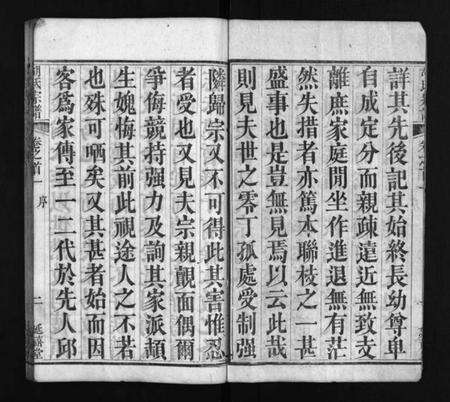 詳其先後記其始終長幼尊卑
自成定分而親疎遠近無致支
離庶家庭閒坐作進退無有茫
然失措者亦篤本聯枝之一甚
盛事也是豈無見焉以云此哉
則見夫世之零丁孤處受制强
隣歸宗又不可得此其害惟忍
者受也又見夫宗親覿面偶爾
爭侮競持强力及詢其家派頳
生媿悔其前此視途人之不若
也殊可哂矣又其甚者始而因
客爲家傳至一二代於先人邱
胡氏宗譜
卷之首一
序
二
延禧堂